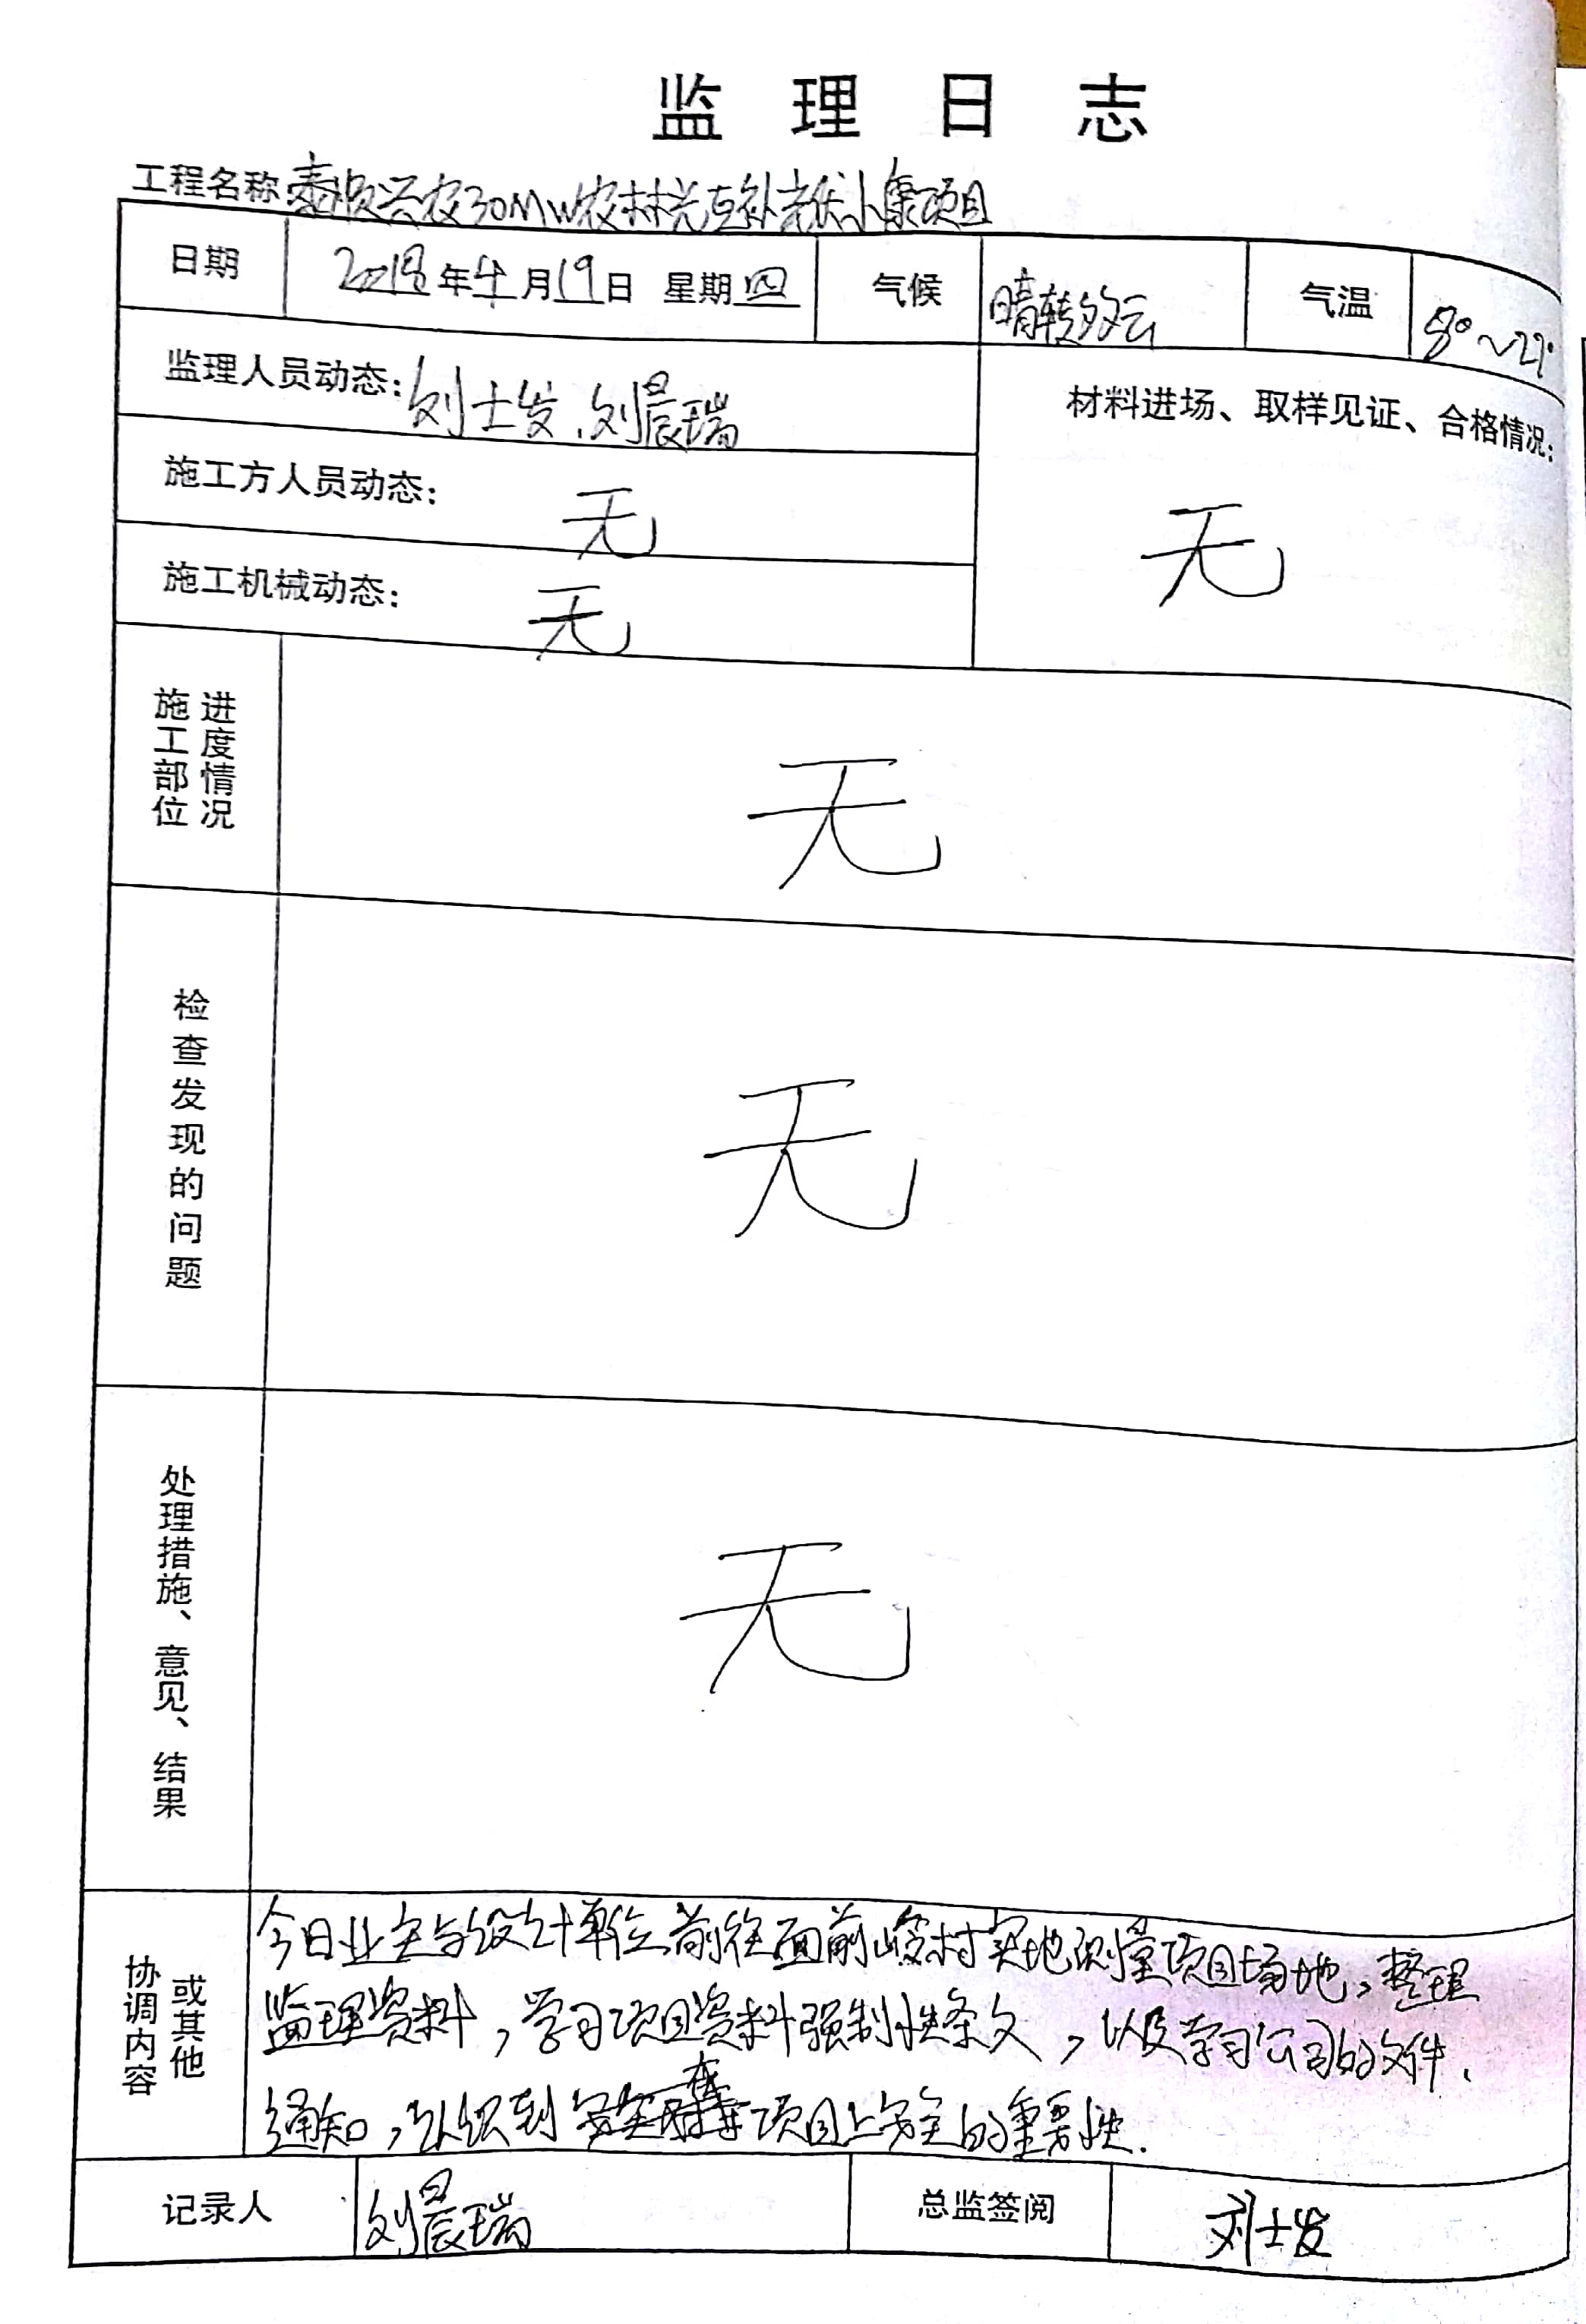 监理日志
工程名称 泰投兴农30MW农林光互补光伏小康项目
日期 2018年4月19日 星期四 气候 晴转多云 气温 8°~27°
监理人员动态: 刘士发、刘晨瑞
材料进场、取样见证、合格情况:
无
施工方人员动态: 无
施工机械动态: 无
施工部位
进度情况
无
检查发现的问题
无
处理措施、意见、结果
无
协调内容
或其他
今日业主与设计单位前往面前岭村实地测量项目场地,整理
监理资料,学习项目资料强制性条文,以及学习公司的文件.
通知,认识到在项目上安全的重要性.
记录人 刘晨瑞 总监签阅 刘士发